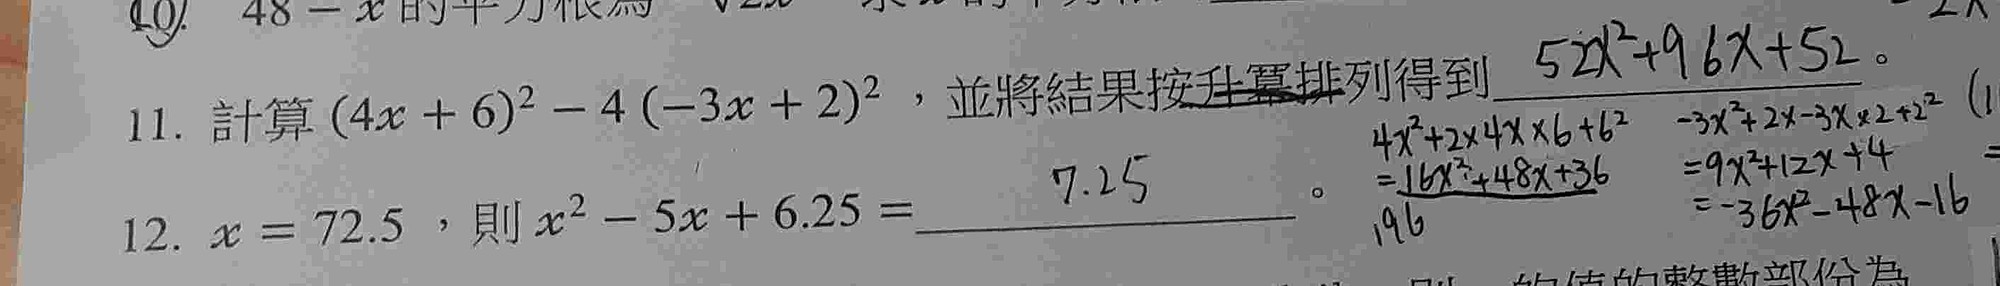 10. 48 − x 的平方根為
11. 計算 (4x + 6)² − 4 (−3x + 2)² ，並將結果按升冪排列得到 52x²+96x+52 。
4x²+2×4x×6+6² -3x²+2x-3x×2+2²
=16x²+48x+36 =9x²+12x+4
196 =-36x²-48x-16
12. x = 72.5 ，則 x² − 5x + 6.25 = 7.25 。
的值的整數部份為